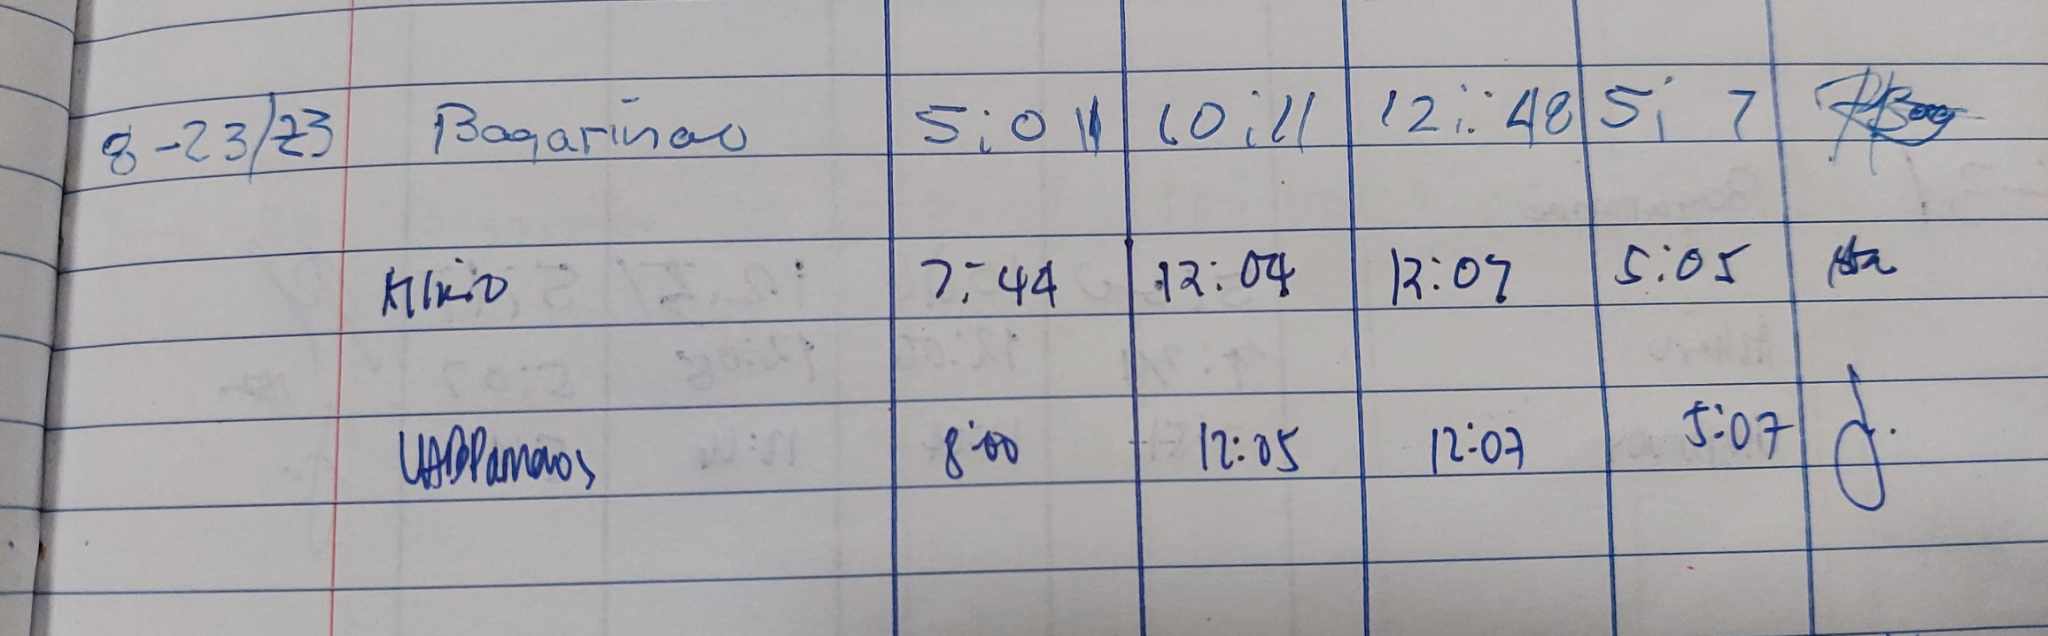 8-23/23 Bagariñao 5:01 10:11 12:48 5:7
Alkio 7:44 12:04 12:07 5:05
8:00 12:05 12:07 5:07